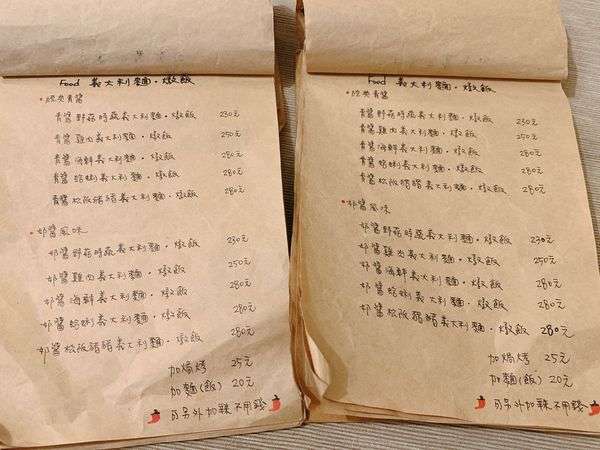 Food 義大利麵·燉飯
•經典青醬
青醬野菇時蔬義大利麵·燉飯 230元
青醬雞肉義大利麵·燉飯 250元
青醬海鮮義大利麵·燉飯 280元
青醬蛤蜊義大利麵·燉飯 280元
青醬松阪豬豬義大利麵·燉飯 280元
•奶醬風味
奶醬野菇時蔬義大利麵·燉飯 230元
奶醬雞肉義大利麵·燉飯 250元
奶醬海鮮義大利麵·燉飯 280元
奶醬蛤蜊義大利麵·燉飯 280元
奶醬松阪豬豬義大利麵·燉飯 280元
加焗烤 25元
加麵(飯) 20元
可另外加辣不用錢
Food 義大利麵·燉飯
•經典青醬
青醬野菇時蔬義大利麵·燉飯 230元
青醬雞肉義大利麵·燉飯 250元
青醬海鮮義大利麵·燉飯 280元
青醬蛤蜊義大利麵·燉飯 280元
青醬松阪豬豬義大利麵·燉飯 280元
•奶醬風味
奶醬野菇時蔬義大利麵·燉飯 230元
奶醬雞肉義大利麵·燉飯 250元
奶醬海鮮義大利麵·燉飯 280元
奶醬蛤蜊義大利麵·燉飯 280元
奶醬松阪豬豬義大利麵·燉飯 280元
加焗烤 25元
加麵(飯) 20元
可另外加辣不用錢